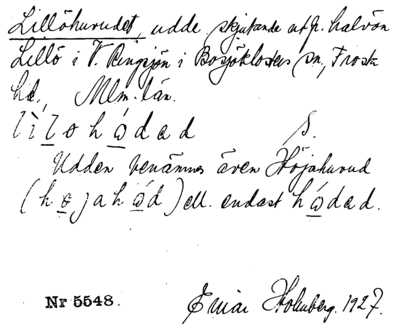 Lillöhuvudet, udde skjutande ut fr. halvön
Lillö i V. Ringsjön i Bosjöklosters sn, Frosta
hd, Mlm. län.
lilohødad S.
Udden benämnes även Höjahuvud
(højahød) ell. endast hødad.
Nr 5548. Einar Holmberg. 1927.